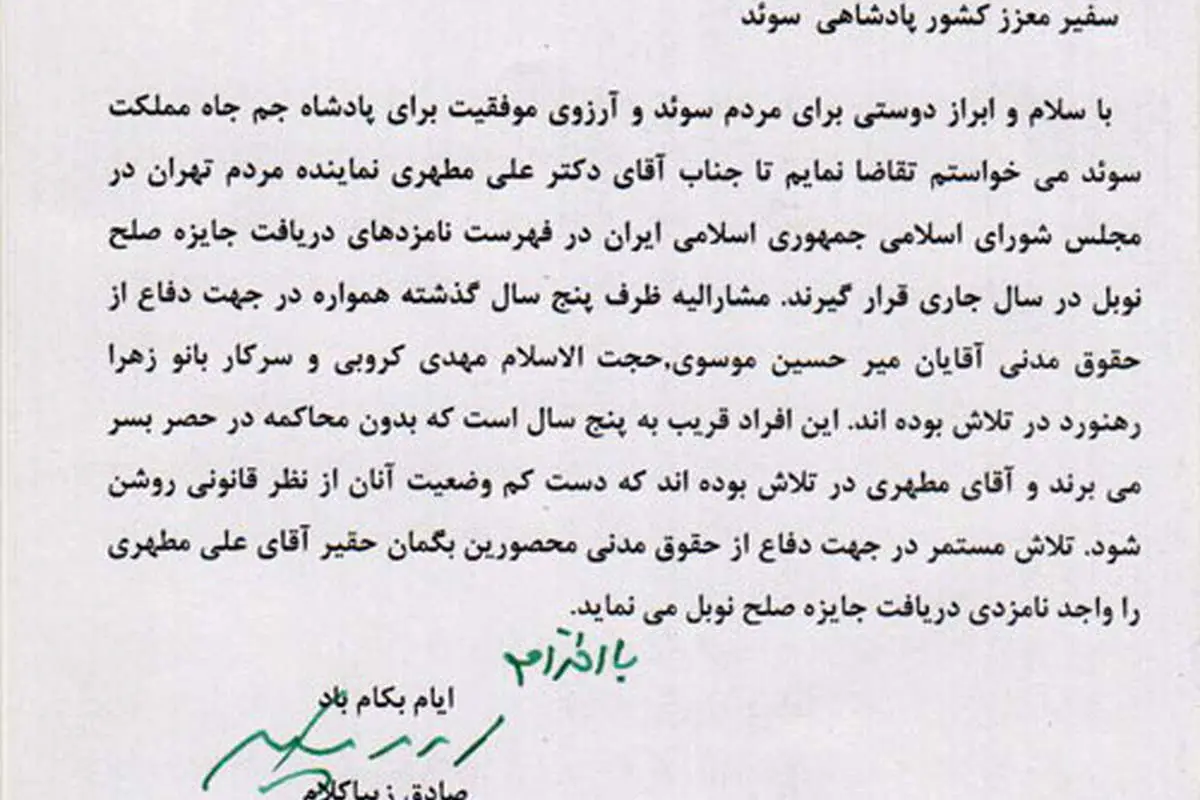 سفیر معزز کشور پادشاهی سوئد
با سلام و ابراز دوستی برای مردم سوئد و آرزوی موفقیت برای پادشاه جم جاه مملکت
سوئد می خواستم تقاضا نمایم تا جناب آقای دکتر علی مطهری نماینده مردم تهران در
مجلس شورای اسلامی جمهوری اسلامی ایران در فهرست نامزدهای دریافت جایزه صلح
نوبل در سال جاری قرار گیرند. مشارالیه ظرف پنج سال گذشته همواره در جهت دفاع از
حقوق مدنی آقایان میر حسین موسوی,حجت الاسلام مهدی کروبی و سرکار بانو زهرا
رهنورد در تلاش بوده اند. این افراد قریب به پنج سال است که بدون محاکمه در حصر بسر
می برند و آقای مطهری در تلاش بوده اند که دست کم وضعیت آنان از نظر قانونی روشن
شود. تلاش مستمر در جهت دفاع از حقوق مدنی محصورین بگمان حقیر آقای علی مطهری
را واجد نامزدی دریافت جایزه صلح نوبل می نماید.
با احترام
ایام بکام باد
صادق زیباکلام